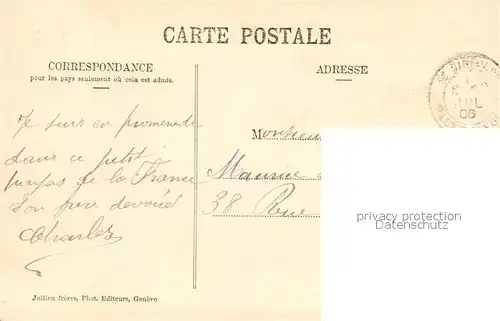 CARTE POSTALE
CORRESPONDANCE
pour les pays seulement où cela est admis.
ADRESSE
JUIL
06
Je suis en promenade
dans ce petit
de la France
Ton frère dévoué
Charles
Monsieu
Maurice
38 Rue
privacy protection
Datenschutz
Jullien frères, Phot. Editeurs, Genève